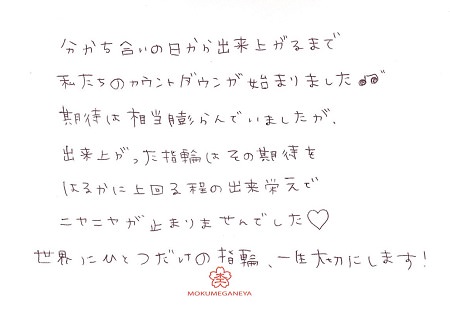 分かち合いの日から出来上がるまで
私たちのカウントダウンが始まりました♪
期待は相当膨らんでいましたが、
出来上がった指輪はその期待を
はるかに上回る程の出来栄えで
ニヤニヤが止まりませんでした♡
世界にひとつだけの指輪、一生大切にします!
MOKUMEGANEYA